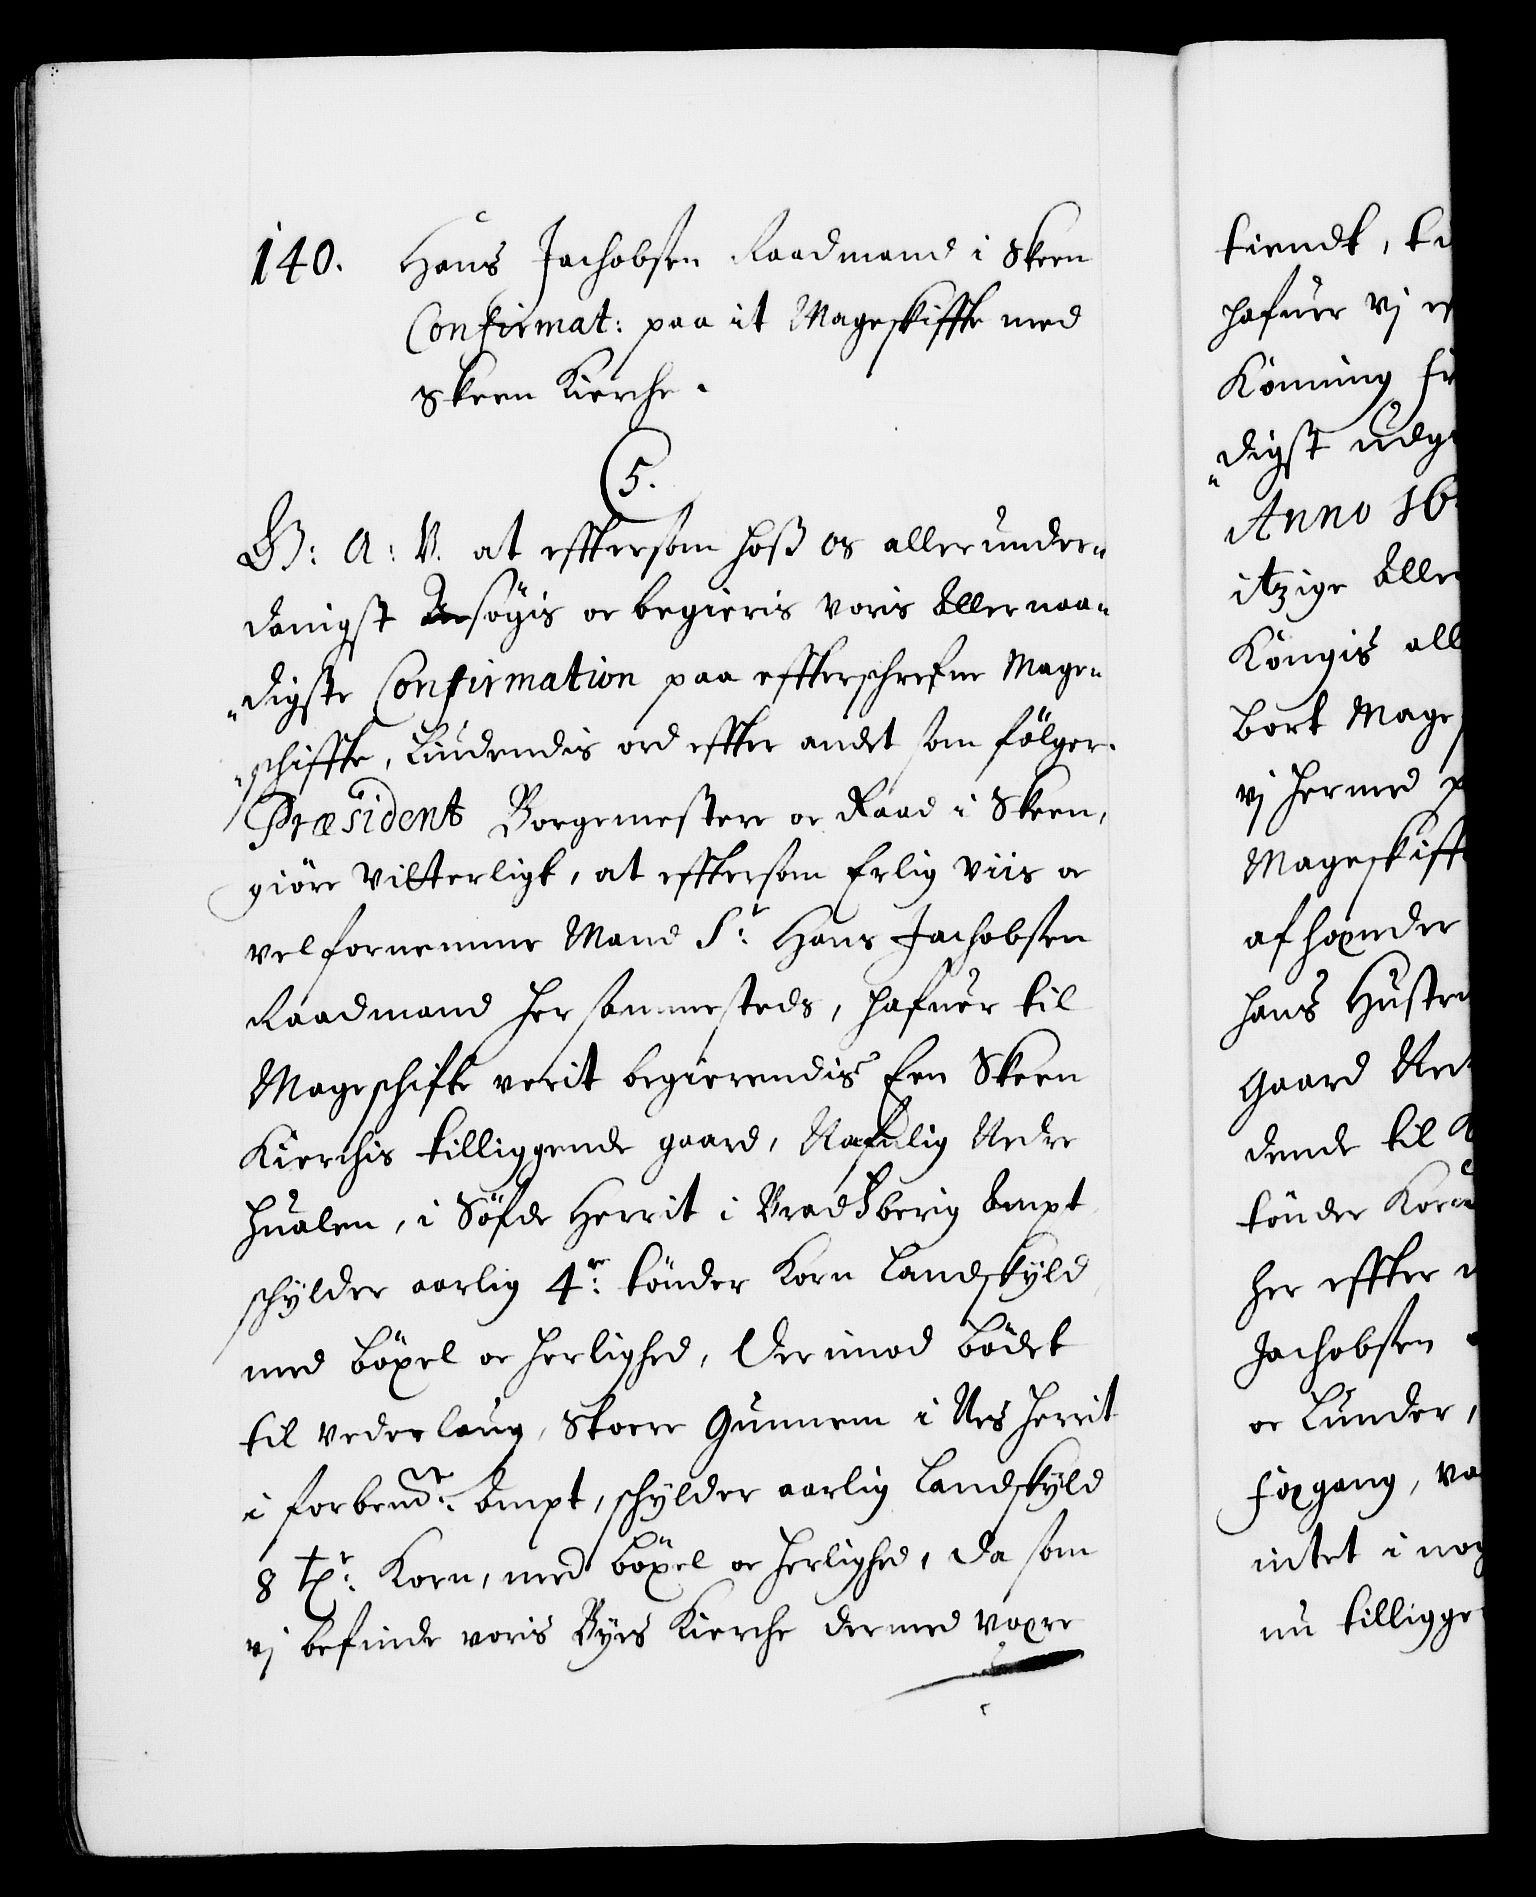 140. Hans Jachobsen Raadmand i Skeen
Confirmat: paa it Mageskiffte med
Skeen Kierche.
5.
G: A: V. at efftersom hoß os allerunder„
danigst Ansøgis oc begieris voris Allernaa„
„digste Confirmation paa effterschrefne Mage„
„schiffte, Liudendis ord effter andet som fölger.
Præsident Borgemestere oc Raad i Skeen,
giöre Vitterligt, at efftersom Erlig Viis oc
velfornemme Mand Sr: Hans Jachobsen
Raadmand her sammesteds, hafuer til
Mageschifte verit begierendis Een Skeen
Kierchis tilliggende gaard, Nafnlig Nedre
Hualen, i Söfde Herrit i Bradsberig Ampt
schylder aarlig 4re: tönder Korn Landskyld
med böxel oc herlighed, Derimod bödet
til Vederlaug, Store Gunnem i Nes Herrit
i forbemte: Ampt, schylder aarlig Landskyld
8 tr: Korn, med böxel oc herlighed, da som
vj befinde voris Byes Kierche dermed være
tiendt, ti
hafuer vj
Konning Fr
„digst udg
Anno 16
itzige Alle
Kongis all
bort Mage
vj hermed p
Mageskifft
afhænder
hans Hustru
Gaard Ned
dende til K
tönder Korn
her effter
Jachobsen
oc Lunder,
Foxgang, va
intet i nog
nu tilligge